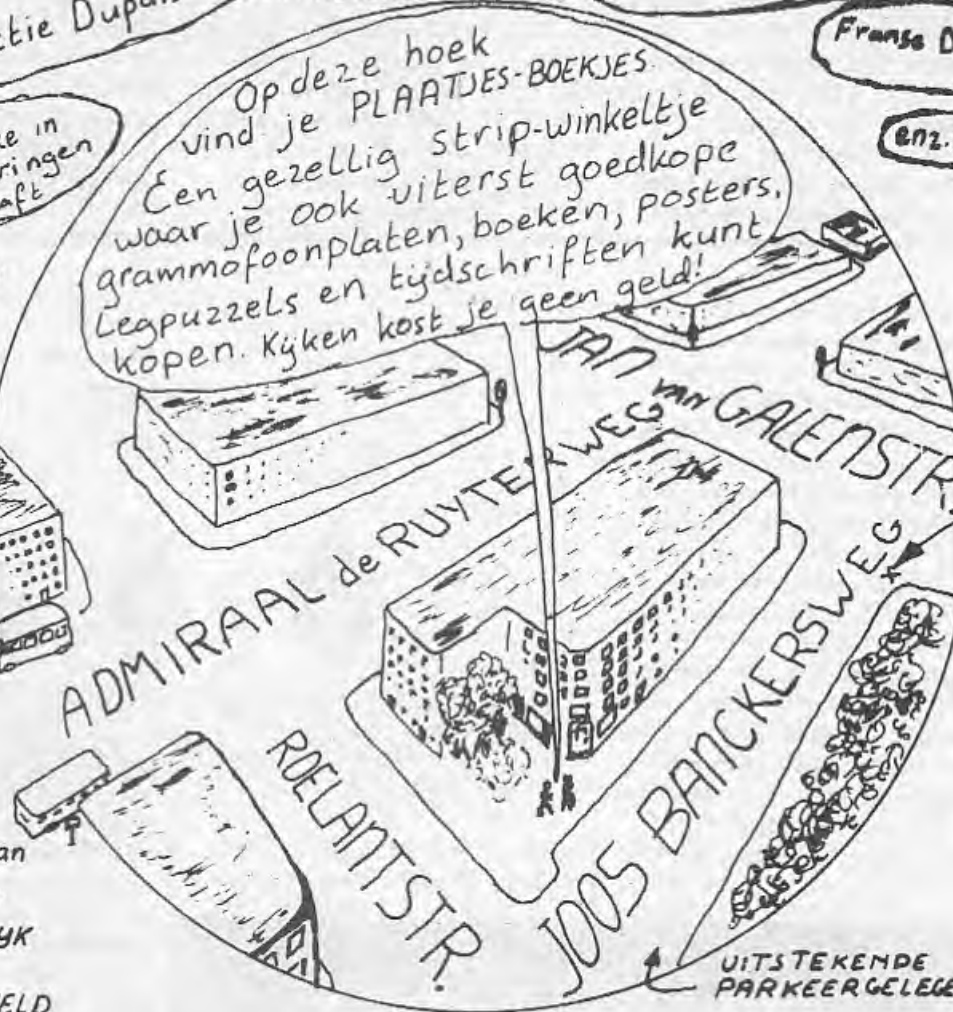 ctie Dupuis
Franse D
enz.
e in
ringen
aft
Op deze hoek
vind je PLAATJES-BOEKJES.
Een gezellig strip-winkeltje
waar je ook uiterst goedkope
grammofoonplaten, boeken, posters,
Legpuzzels en tijdschriften kunt
kopen. Kijken kost je geen geld!
JAN van GALENSTR.
ADMIRAAL de RUYTERWEG
ROELANTSTR.
JOOS BANCKERSWEG
an
YK
ELD
UITSTEKENDE
PARKEERGELEGE